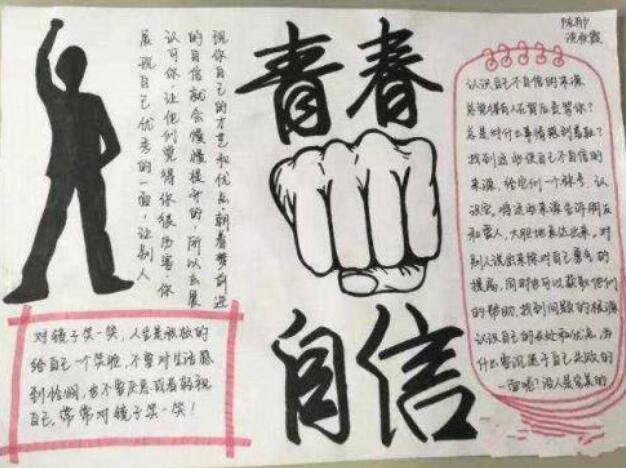 青春
自信
展现自己优秀的一面,让别人
认可你,让他们觉得你很厉害,你
的自信就会慢慢提升的,所以去展
现你自己的才艺和优点,朝着梦前进
对镜子笑一笑,人生是被做的
给自己一个笑脸,不要对生活感
到怕悯,也不要厌恶或者弱视
自己,常常对镜子笑一笑!
认识自己不自信的来源
总觉得有人在背后责骂你?
总是对什么事情感到羞耻?
找到这些使自己不自信的
来源,给它们一个称号,认
识它。将这些来源告诉朋友
和家人,大胆地表达出来。对
别人说出来
同时也可以获取他们
的帮助,找到问题的根源
认识自己的长处和优点,为
什么要沉迷于自己失败的
一面呢?没人是完美的